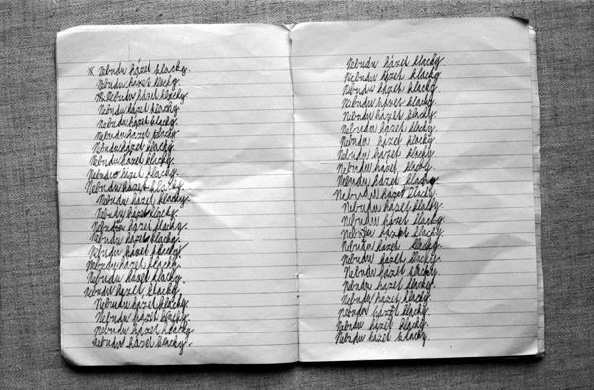 Nebudu házet klacky.
Nebudu házet klacky.
Nebudu házet klacky.
Nebudu házet klacky.
Nebudu házet klacky.
Nebudu házet klacky
Nebudu házet klacky.
Nebudu házet klacky.
Nebudu házet klacky.
Nebudu házet klacky.
Nebudu házet klacky.
Nebudu házet klacky.
Nebudu házet klacky.
Nebudu házet klacky.
Nebudu házet klacky.
Nebudu házet klacky.
Nebudu házet klacky.
Nebudu házet klacky.
Nebudu házet klacky.
Nebudu házet klacky.
Nebudu házet klacky.
Nebudu házet klacky.
Nebudu házet klacky.
Nebudu házet klacky.
Nebudu házet klacky.
Nebudu házet klacky.
Nebudu házet klacky.
Nebudu házet klacky.
Nebudu házet klacky.
Nebudu házet klacky.
Nebudu házet klacky
Nebudu házet klacky
Nebudu házet klacky.
Nebudu házet klacky.
Nebudu házet klacky.
Nebudu házet klacky.
Nebudu házet klacky.
Nebudu házet klacky.
Nebudu házet klacky
Nebudu házet klacky.
Nebudu házet klacky.
Nebudu házet klacky.
Nebudu házet klacky.
Nebudu házet klacky